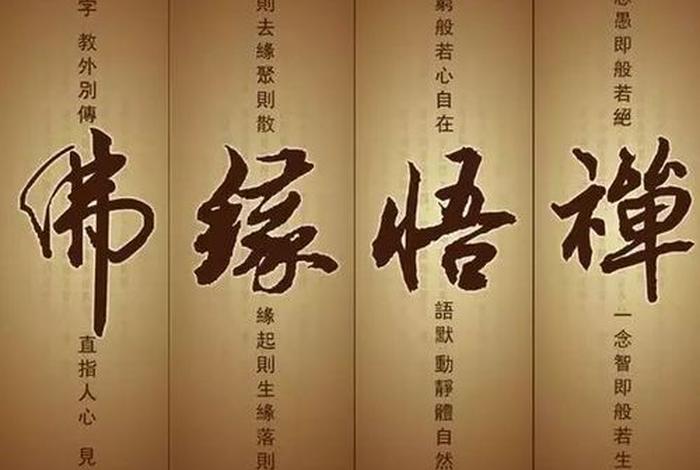 念愚即般若絕
禪
一念智即般若生
窮般若心自在
悟
語默動靜體自然
則去緣聚則散
緣
緣起則生緣落則
字 教外別傳
佛
直指人心 見